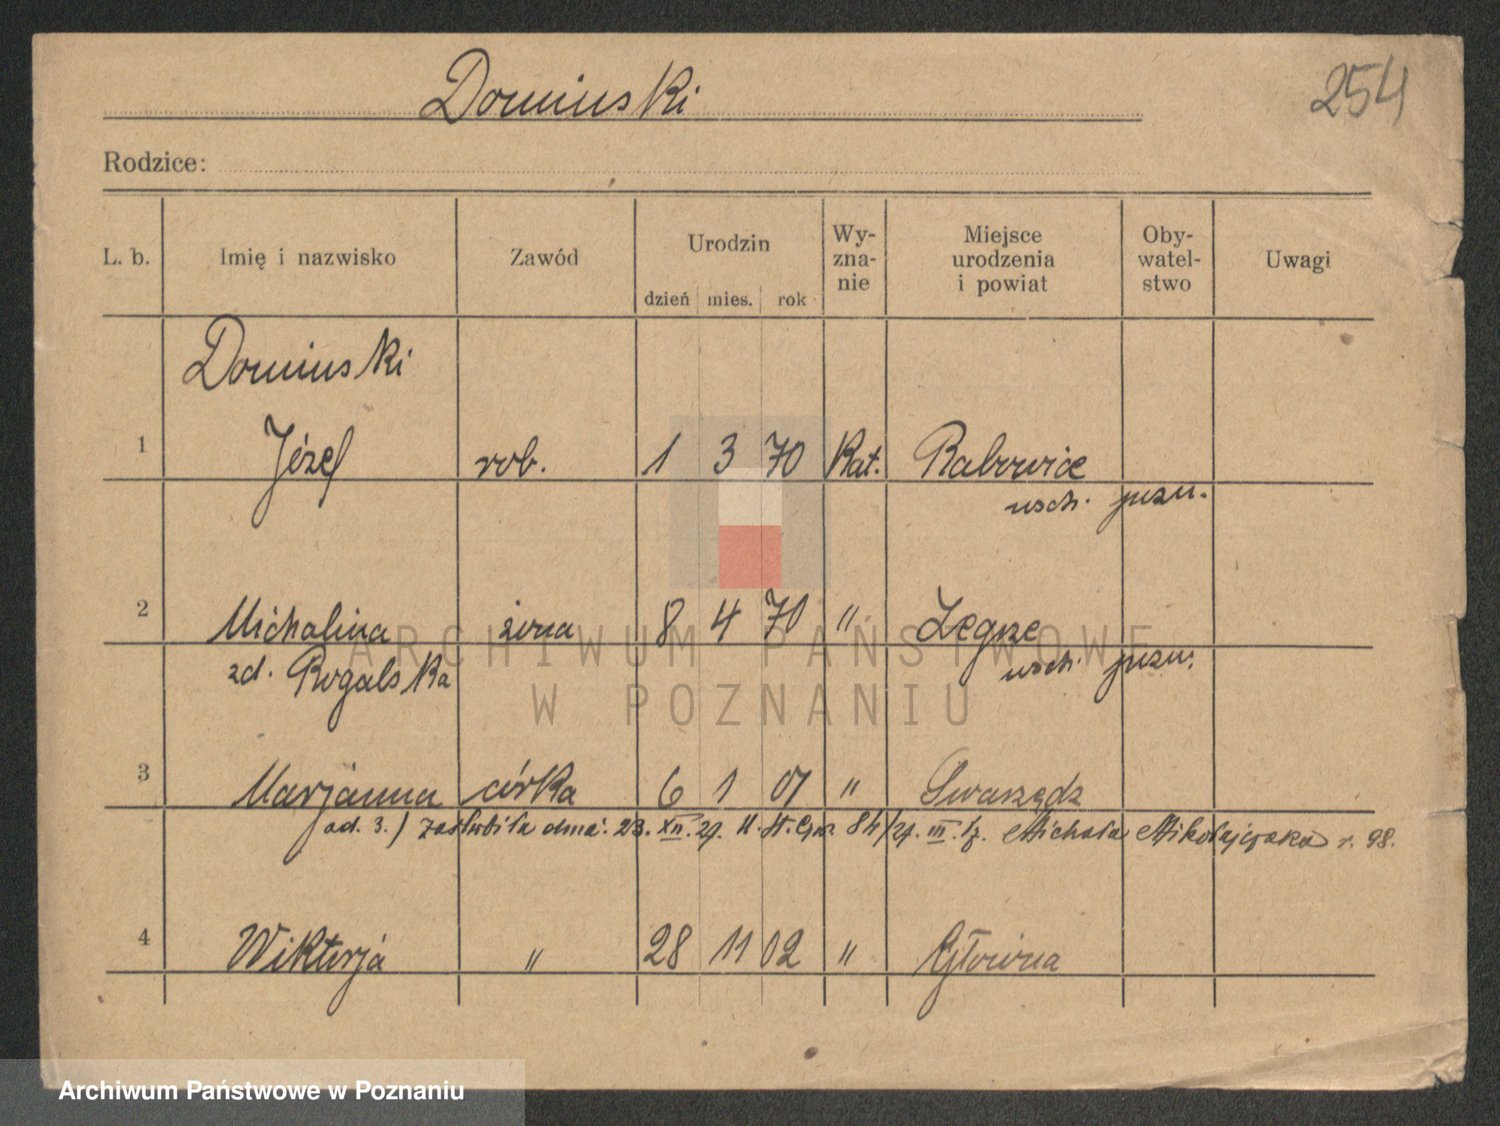 Dominski
254
Rodzice:
L. b. Imię i nazwisko Zawód Urodzin Wy-zna-nie Miejsce urodzenia i powiat Oby-watel-stwo Uwagi
dzień mies. rok
Dominski
1 Józef rob. 1 3 70 Kat. Rabowice
wsch. pozn.
2 Michalina żona 8 4 70 " Zegrze
zd. Rogalska wsch. pozn.
3 Marjanna córka 6 1 01 " Swarzędz
ad. 3.) zaślubiła dnia: 23. XII. 29. Michała Mikołajczaka r. 98.
4 Wiktorja " 28 11 02 " Główna
ARCHIWUM PAŃSTWOWE
W POZNANIU
Archiwum Państwowe w Poznaniu